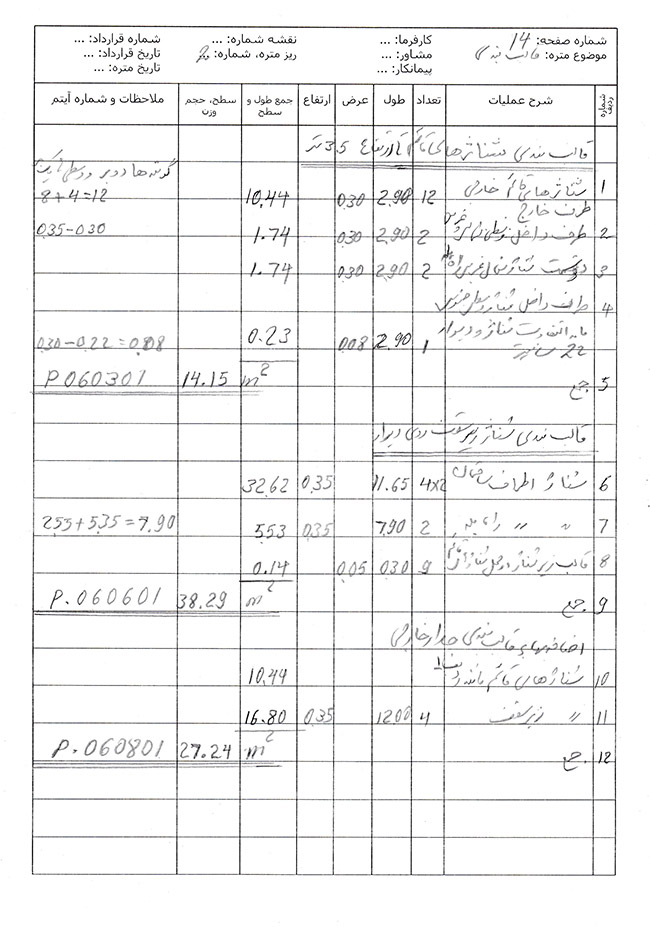 شماره صفحه: 14 کارفرما: ... نقشه شماره: ... شماره قرارداد: ...
موضوع متره: قالب بندی مشاور: ... ریز متره، شماره: 2 تاریخ قرارداد: ...
پیمانکار: ... تاریخ متره: ...
شماره ردیف شرح عملیات تعداد طول عرض ارتفاع جمع طول و سطح سطح، حجم وزن ملاحظات و شماره آیتم
قالب بندی شناژهای قائم تا ارتفاع 3.5 متر
گوشه ها دوبر و وسطی یک
1 شناژهای قائم خارجی 12 2.90 0.30 10.44 8+4=12
طرف خارج
2 طرف داخل 2 2.90 0.30 1.74 0.35-0.30
3 2 2.90 0.30 1.74
4 طرف داخل شناژ وسطی
مابه التفاوت شناژ و دیوار 1 2.90 0.08 0.23 0.30-0.22=0.08
22
5 جمع m² 14.15 P 060301
قالب بندی شناژ زیر سقف روی دیوار
6 شناژ اطراف ساختمان 4x2 11.65 0.35 32.62
7 〃 〃 راه پله 2 7.90 0.35 5.53 2.55+5.35=7.90
8 قالب زیر شناژ 9 0.30 0.05 0.14
9 جمع m² 38.29 P.060601
اضافه بهای قالب بندی جدار خارجی
10 شناژهای قائم مانند ردیف 1 10.44
11 〃 زیر سقف 4 12.00 0.35 16.80
12 جمع m² 27.24 P.060801